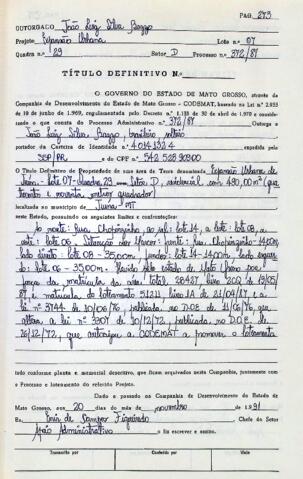 PAG. 273
OUTORGADO João Luiz Silva Bozzo
Projeto Expansão Urbana Lote n.o 07
Quadra n.o 29 Setor D Processo n.o 372/87
TÍTULO DEFINITIVO N.o
O GOVERNO DO ESTADO DE MATO GROSSO, através da
Companhia de Desenvolvimento do Estado de Mato Grosso - CODEMAT, baseado na Lei n.o 2.933
de 10 de junho de 1969, regulamentada pelo Decreto n.o 1.138 de 30 de abril de 1970 e conside-
rando o que consta do Processo Administrativo n.o 372/87 Outorga a
João Luiz Silva Bozzo, brasileiro solteiro
portador da Carteira de Identidade n.o expedida pelo
SSP/PR e do CPF n.o
o Título Definitivo de Propriedade de uma área de Terra denominada Expansão Urbana de
Juína- lote-07-Quadra 29 setor D, residencial com 490,00 m² (qua
trocentos e noventa metros quadrados)
localizada no município de Juína MT
neste Estado, possuindo os seguintes limites e confrontações:
ao norte: Rua ao sul: lote 14, a leste: lote 08, a
oeste: lote 06. frente: Rua 14,00m
lado direito: lote 08 - 35,00m fundos: lote 14-14,00m lado esquer
do: lote 06 - 35,00m. pelo Estado de Mato Grosso por
força da matrícula da área total 26487 livro
é matrícula do loteamento livro 2A de 21/04/87
lei n.o 3744 de 10/06/76 publicada no D.O.E de 11/06/76 que
altera a lei n.o 3307 de 18/12/72, publicada no D.O.E. de
26/12/72, que autorizou a CODEMAT a promover o loteamento
tudo conforme planta e memorial descritivo, que ficam arquivados nesta Companhia, juntamente com
o Processo e loteamento do referido Projeto.
Dado e passado na Companhia de Desenvolvimento do Estado de
Mato Grosso, aos 20 dias do mês de novembro de 1991
Eu, de Campos Figueiredo Chefe do Setor
Apoio Administrativo o fiz escrever e assino.
Transcrito por Conferido por Visto